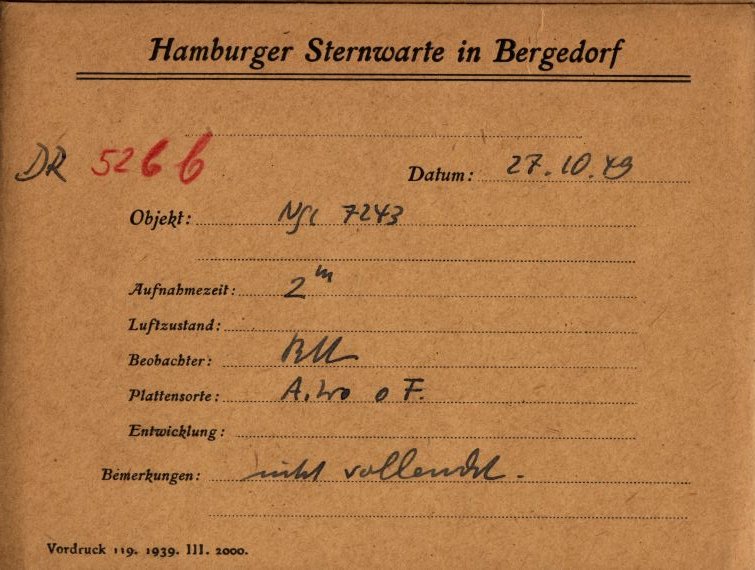 Hamburger Sternwarte in Bergedorf
DR 5266
Datum: 27.10.49
Objekt: NGC 7243
Aufnahmezeit: 2m
Luftzustand:
Beobachter:
Plattensorte: A. o F.
Entwicklung:
Bemerkungen: nicht vollendet.
Vordruck 119. 1939. III. 2000.